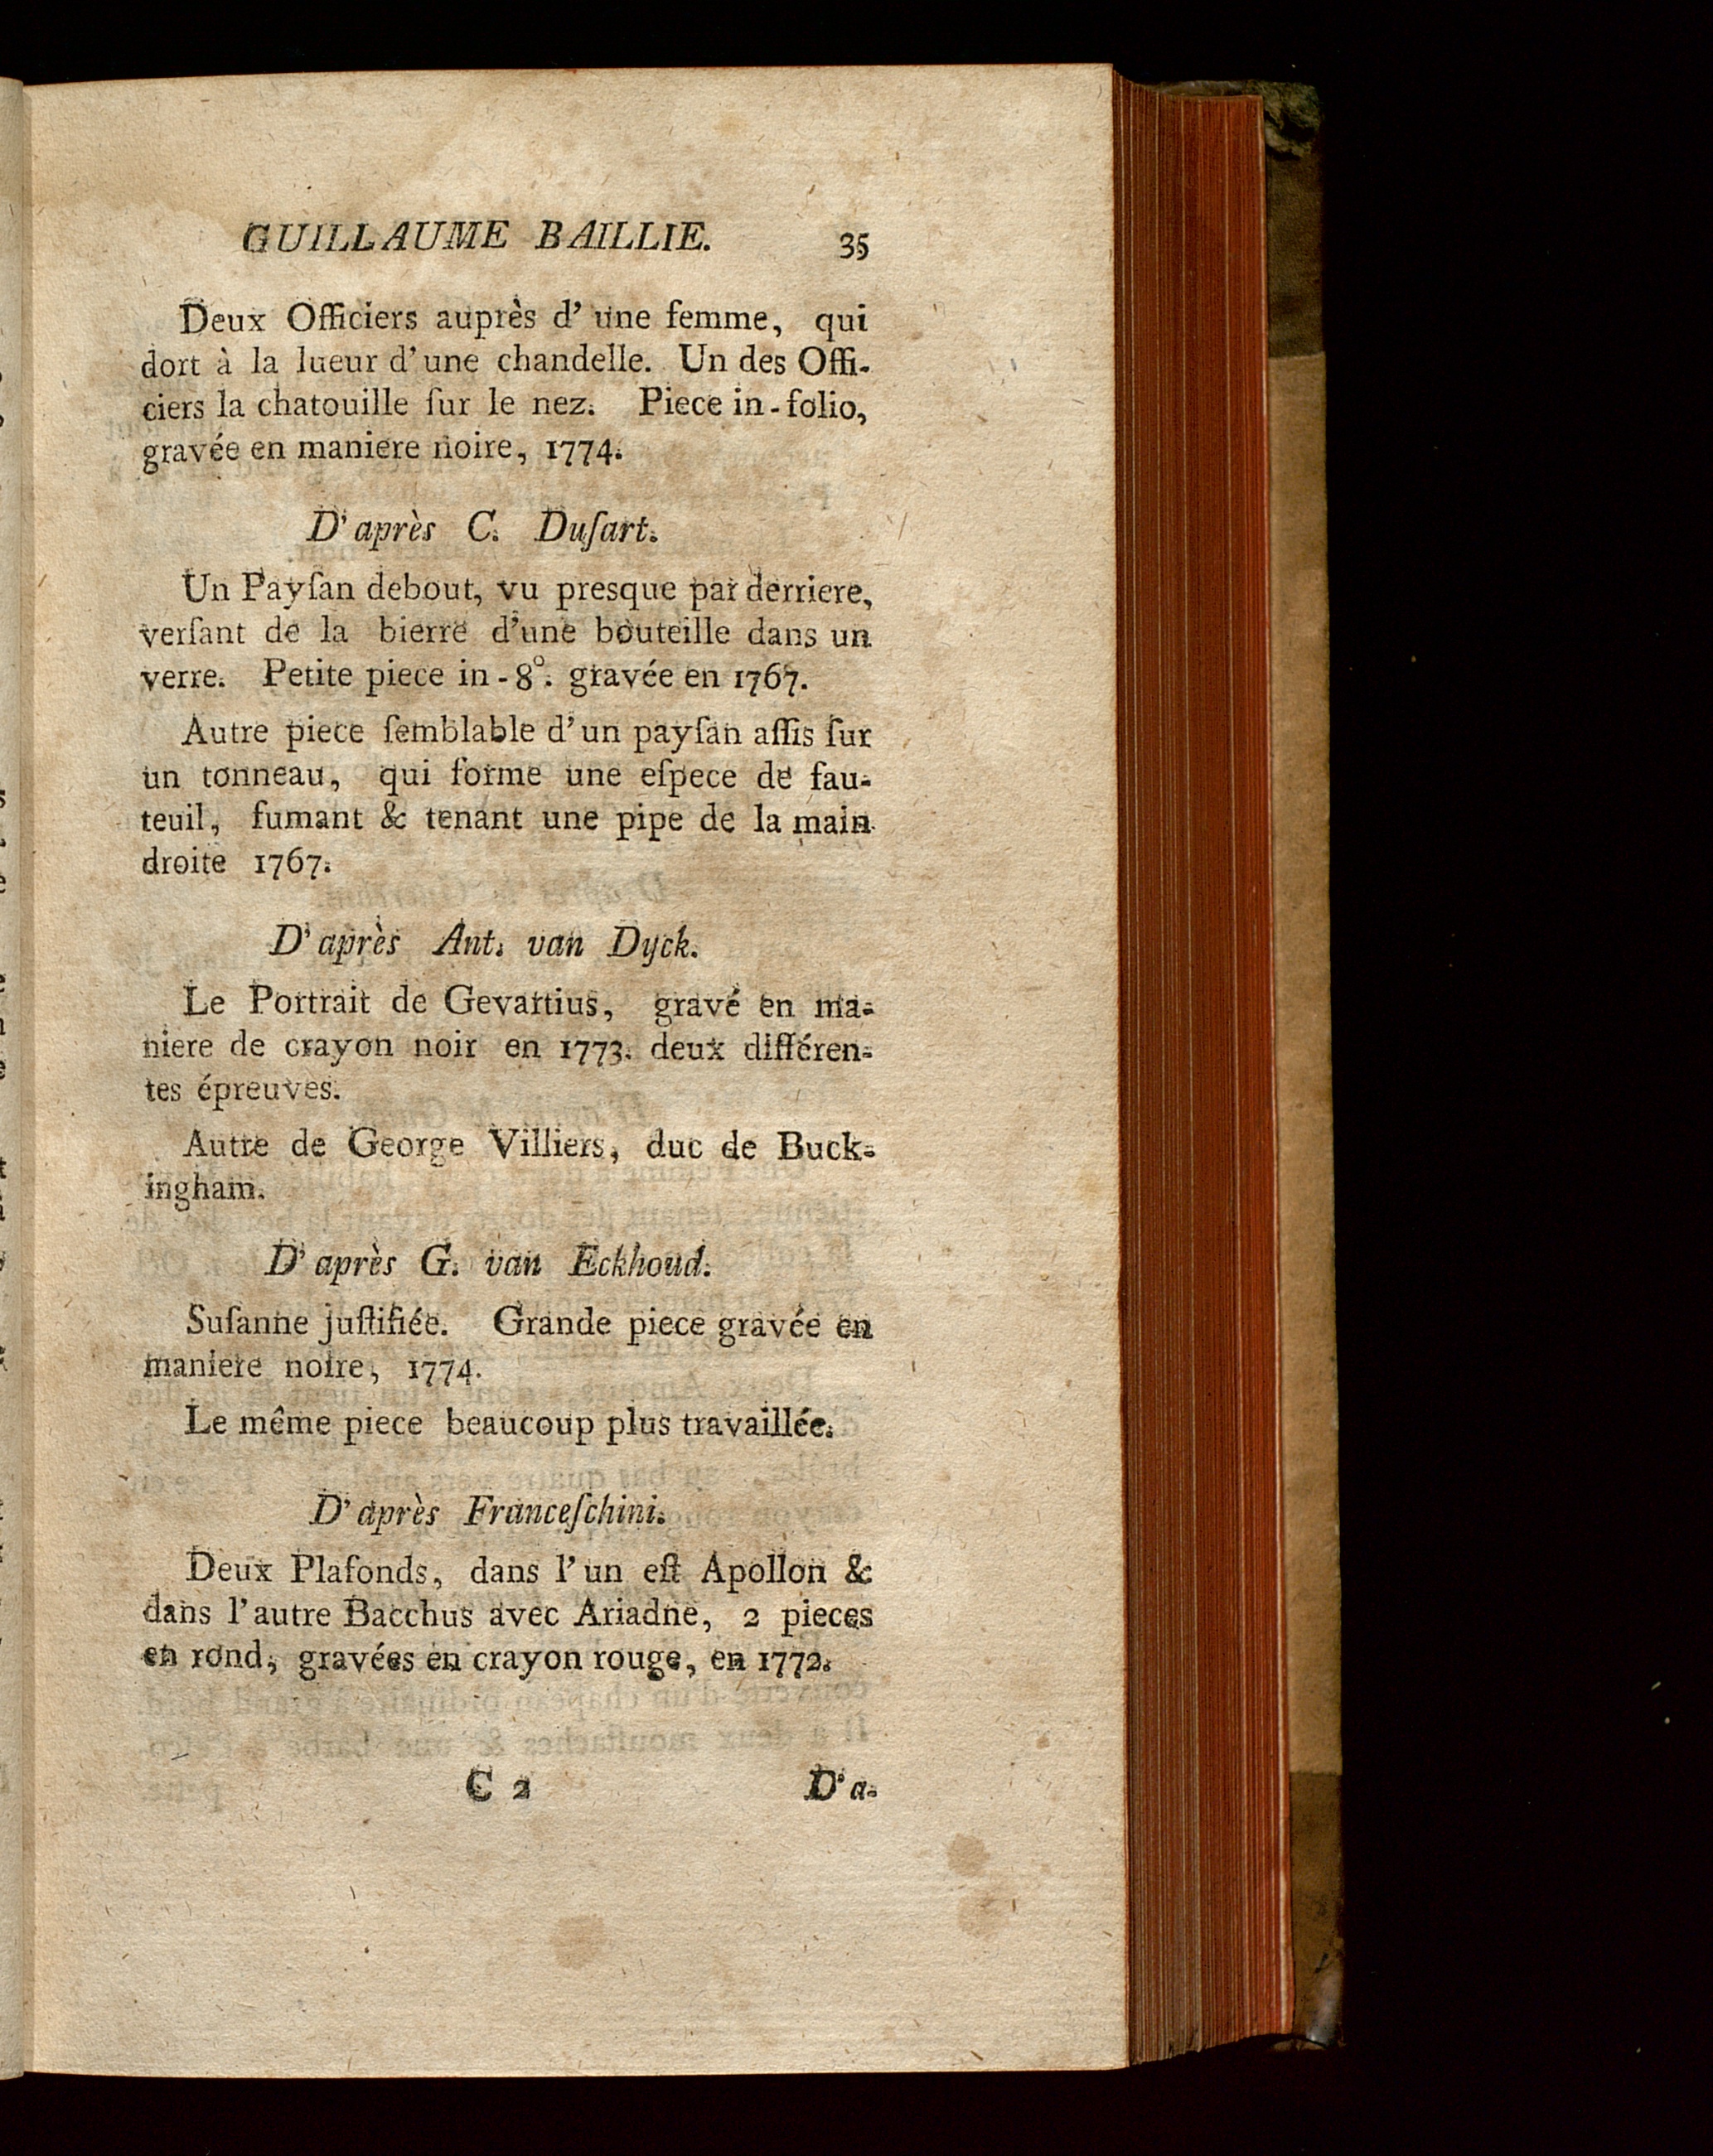 GUILLAUME BAILLIE. 35
Deux Officiers auprès d' une femme, qui
dort à la lueur d'une chandelle. Un des Offi-
ciers la chatouille ſur le nez. Piece in-folio,
gravée en maniere noire, 1774.
D'après C. Duſart.
Un Payſan debout, vu presque par derriere,
verſant de la bierre d'une bouteille dans un
verre. Petite piece in-8°. gravée en 1767.
Autre piece ſemblable d'un payſan aſſis ſur
un tonneau, qui forme une eſpece de fau-
teuil, fumant & tenant une pipe de la main
droite 1767.
D'après Ant. van Dyck.
Le Portrait de Gevartius, gravé en ma-
niere de crayon noir en 1773. deux différen-
tes épreuves.
Autre de George Villiers, duc de Buck-
ingham.
D'après G. van Eckhoud.
Suſanne juſtifiée. Grande piece gravée en
maniere noire, 1774.
Le même piece beaucoup plus travaillée.
D'après Franceſchini.
Deux Plafonds, dans l'un eſt Apollon &
dans l'autre Bacchus avec Ariadne, 2 pieces
en rond, gravées en crayon rouge, en 1772.
C 2 D'a-